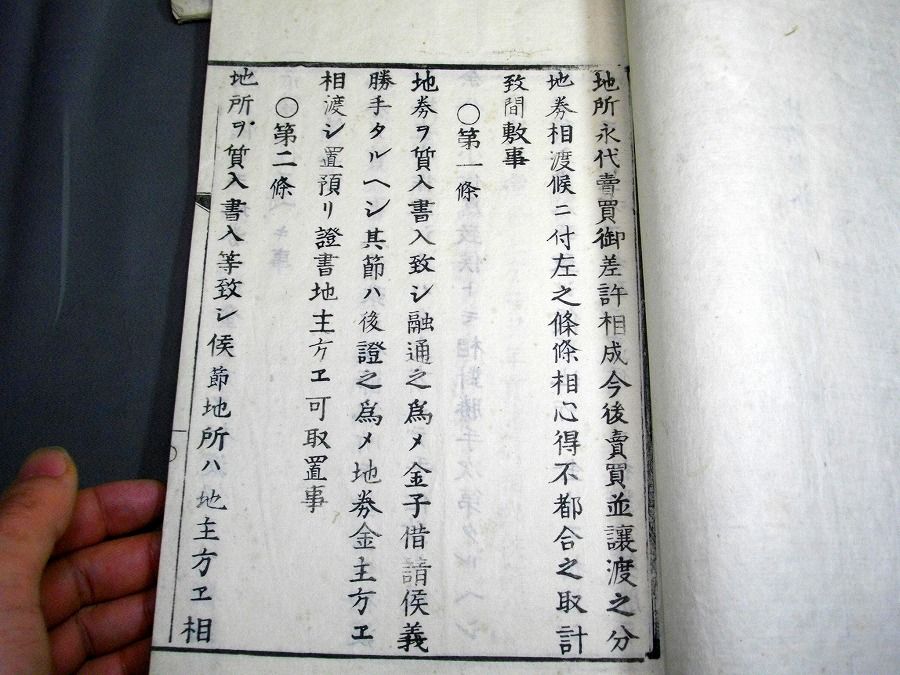 地所永代賣買御差許相成今後賣買並讓渡之分
地券相渡候ニ付左之條條相心得不都合之取計
致間敷事
〇第一條
地券ヲ質入書入致シ融通之爲メ金子借請候義
勝手タルヘシ其節ハ後證之爲メ地券金主方ヱ
相渡シ置預リ證書地主方ヱ可取置事
〇第二條
地所ヲ質入書入等致シ候節地所ハ地主方ヱ相